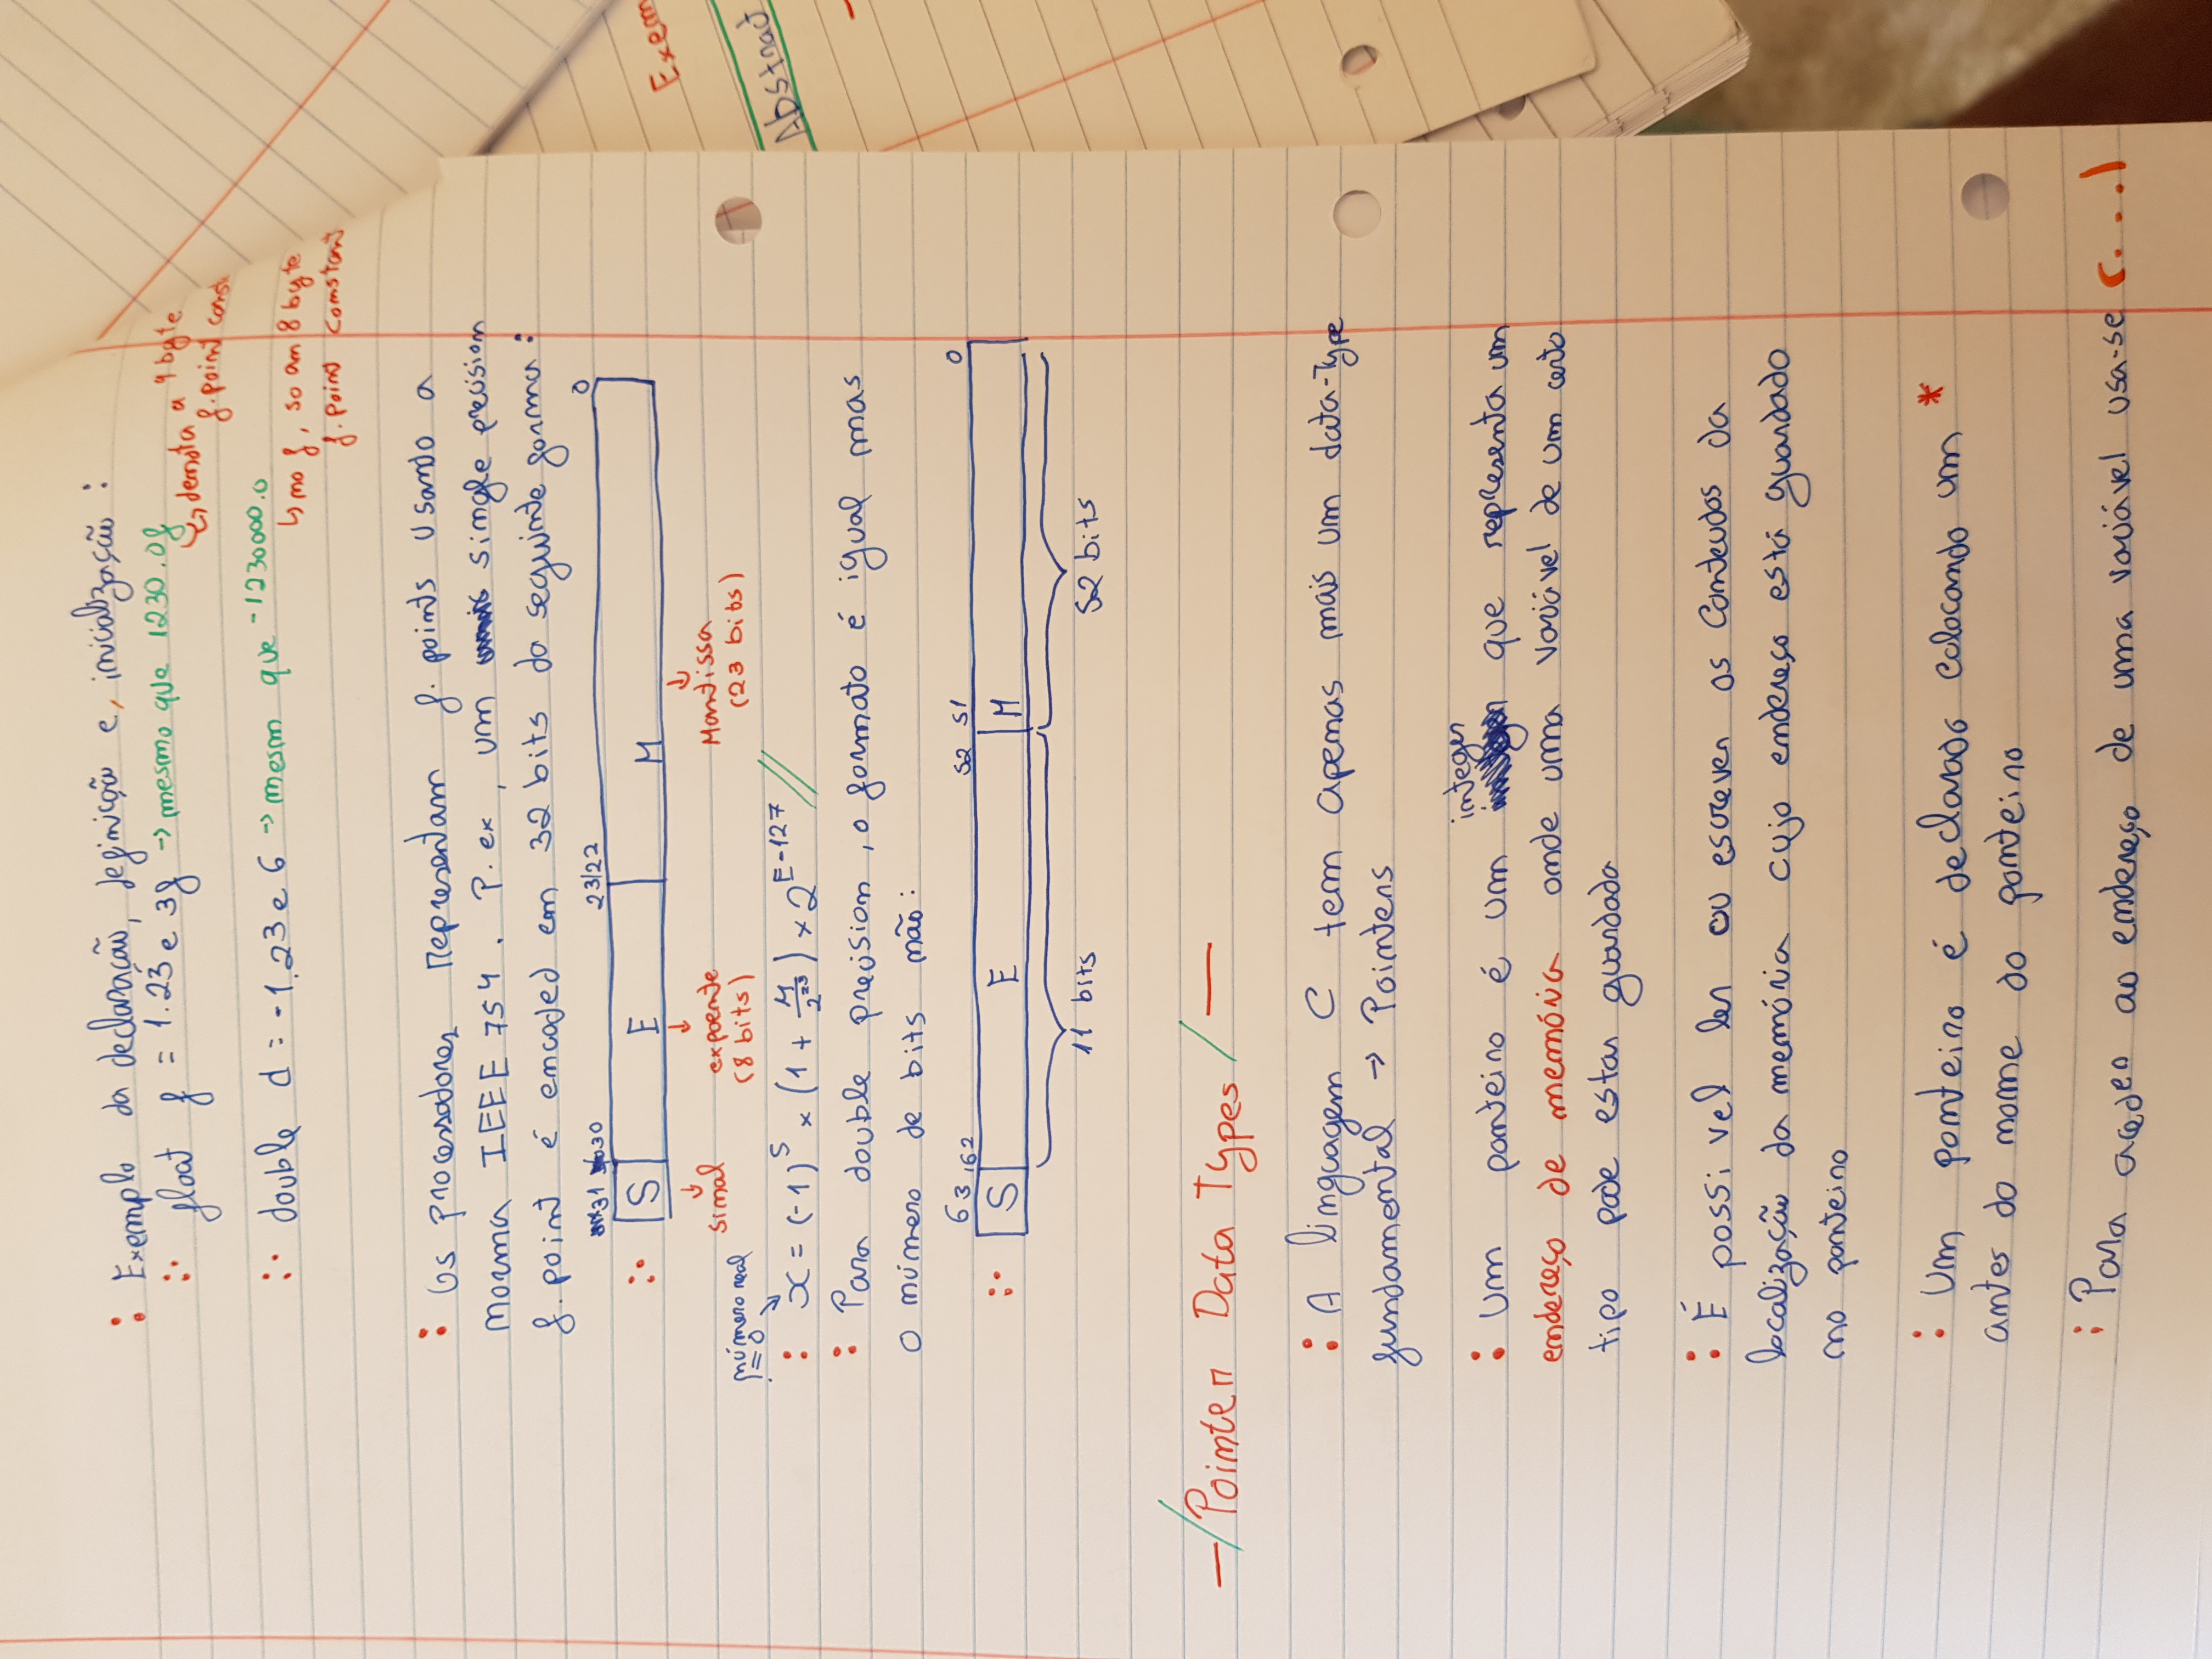 : Exemplo da declaração, definição e, inicialização :
:· float f = 1.23 e 3f → mesmo que 1230.0f
↳ denota a 4 byte
f. point const
:· double d = -1.23 e 6 → mesm que -1230000.0
↳ no f, so an 8 byte
f. point constant
: Os processadores representam f. points usando a
norma IEEE 754. P. ex, um single precision
f. point é encoded em 32 bits da seguinte forma:
31 30 23/22 0
:· S E M
sinal expoente Mantissa
(8 bits) (23 bits)
número real
!=0
: x = (-1)^S × (1 + M/2^23) × 2^E-127 //
: Para double precision, o formato é igual mas
o número de bits não:
63 62 52 51 0
:· S E M
11 bits 52 bits
—/Pointer Data Types/—
: A linguagem C tem apenas mais um data-type
fundamental → Pointers
: Um ponteiro é um integer que representa um
endereço de memória onde uma variável de um certo
tipo pode estar guardada
: É possivel ler ou escrever os conteudos da
localização da memória cujo endereço está guardado
no ponteiro
: Um ponteiro é declarado colocando um *
antes do nome do ponteiro
: Para aceder ao endereço de uma variável usa-se (...)
Exem
Abstract